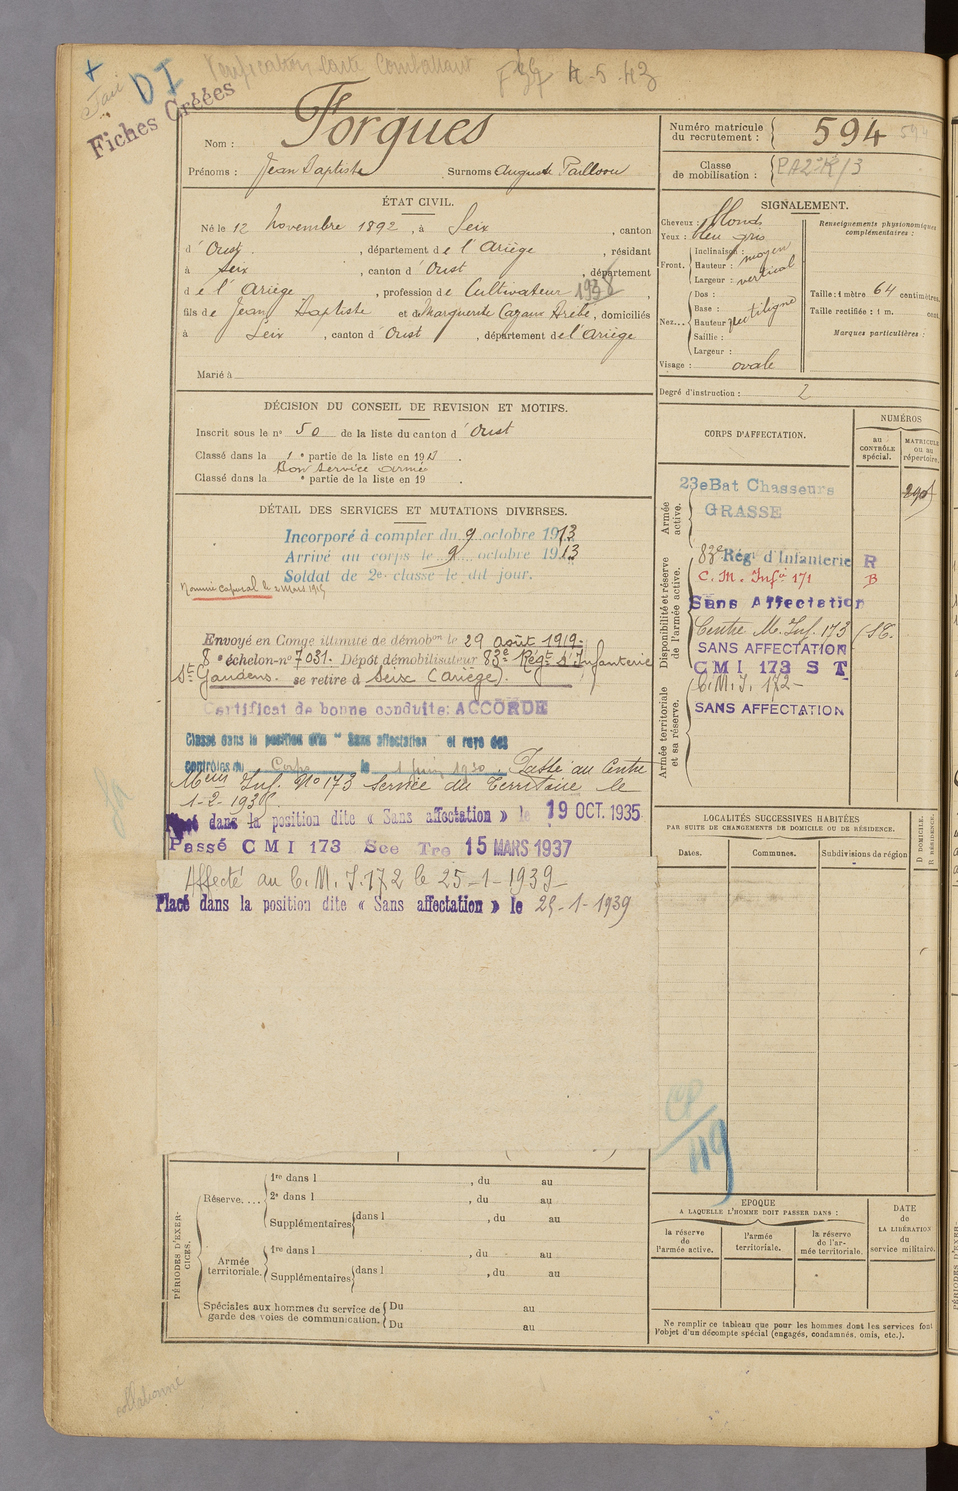 Fait
DI
Vérification Carte Combattant
4-5-43
Fiches Créées
Nom : Forgues
Prénoms : Jean Baptiste Surnoms Auguste
ÉTAT CIVIL.
Né le 12 Novembre 1892, à Seix, canton
d'Oust, département de l'Ariège, résidant
à Seix, canton d'Oust, département
de l'Ariège, profession de Cultivateur,
fils de Jean Baptiste et de Marguerite Cazaux, domiciliés
à Seix, canton d'Oust, département de l'Ariège
Marié à
DÉCISION DU CONSEIL DE REVISION ET MOTIFS.
Inscrit sous le n° 50 de la liste du canton d'Oust
Classé dans la 1e partie de la liste en 191
Bon service armé
Classé dans la e partie de la liste en 19 .
DÉTAIL DES SERVICES ET MUTATIONS DIVERSES.
Incorporé à compter du 9 octobre 1913
Arrivé au corps le 9 octobre 1913
Soldat de 2e classe le dit jour.
Nommé caporal le 2 Mars 1915
Envoyé en Congé illimité de démobon le 29 août 1919.
8e échelon-n° 7031. Dépôt démobilisateur 83e Régt d'Infanterie
St Gaudens. se retire à Seix (Ariège).
Certificat de bonne conduite: ACCORDÉ
Classé dans la position dite " Sans affectation " et rayé des
contrôles du Corps le 1 juin 1930. Passé au Centre
Meur Inf. N° 173 Service du Territoire le
1-2-193
Placé dans la position dite « Sans affectation » le 19 OCT. 1935
Passé C M I 173 Sce Tre 15 MARS 1937
Affecté au C. M. I. 172 le 25-1-1939-
Placé dans la position dite « Sans affectation » le 25-1-1939
PÉRIODES D'EXERCICES.
Réserve....
1re dans l , du au
2e dans l , du au
Supplémentaires dans l , du au
Armée territoriale.
1re dans l , du au
Supplémentaires dans l , du au
Spéciales aux hommes du service de garde des voies de communication.
Du au
Du au
Numéro matricule du recrutement : 594
594
Classe de mobilisation :
SIGNALEMENT.
Cheveux : blonds
Yeux : bleu gris
Front.
Inclinaison : moyen
Hauteur :
Largeur : vertical
Nez...
Dos :
Base :
Hauteur : rectiligne
Saillie :
Largeur :
Visage : ovale
Renseignements physionomiques complémentaires :
Taille : 1 mètre 64 centimètres.
Taille rectifiée : 1 m. cent.
Marques particulières :
Degré d'instruction : 2
CORPS D'AFFECTATION.
NUMÉROS
au CONTRÔLE spécial.
MATRICULE ou au répertoire.
Armée active.
23e Bat Chasseurs
GRASSE
Disponibilité et réserve de l'armée active.
83e Rég' d'Infanterie R
C. M. Infie 171 B
Sans Affectation
Centre M. Inf. 173 (ST.
SANS AFFECTATION
C M I 173 S T
Armée territoriale et sa réserve.
C. M. I. 172-
SANS AFFECTATION
LOCALITÉS SUCCESSIVES HABITÉES
PAR SUITE DE CHANGEMENTS DE DOMICILE OU DE RÉSIDENCE.
Dates.
Communes.
Subdivisions de région
D DOMICILE.
R RÉSIDENCE.
EPOQUE
A LAQUELLE L'HOMME DOIT PASSER DANS :
la réserve de l'armée active.
l'armée territoriale.
la réserve de l'armée territoriale.
DATE de LA LIBÉRATION du service militaire.
Ne remplir ce tableau que pour les hommes dont les services font
l'objet d'un décompte spécial (engagés, condamnés, omis, etc.).